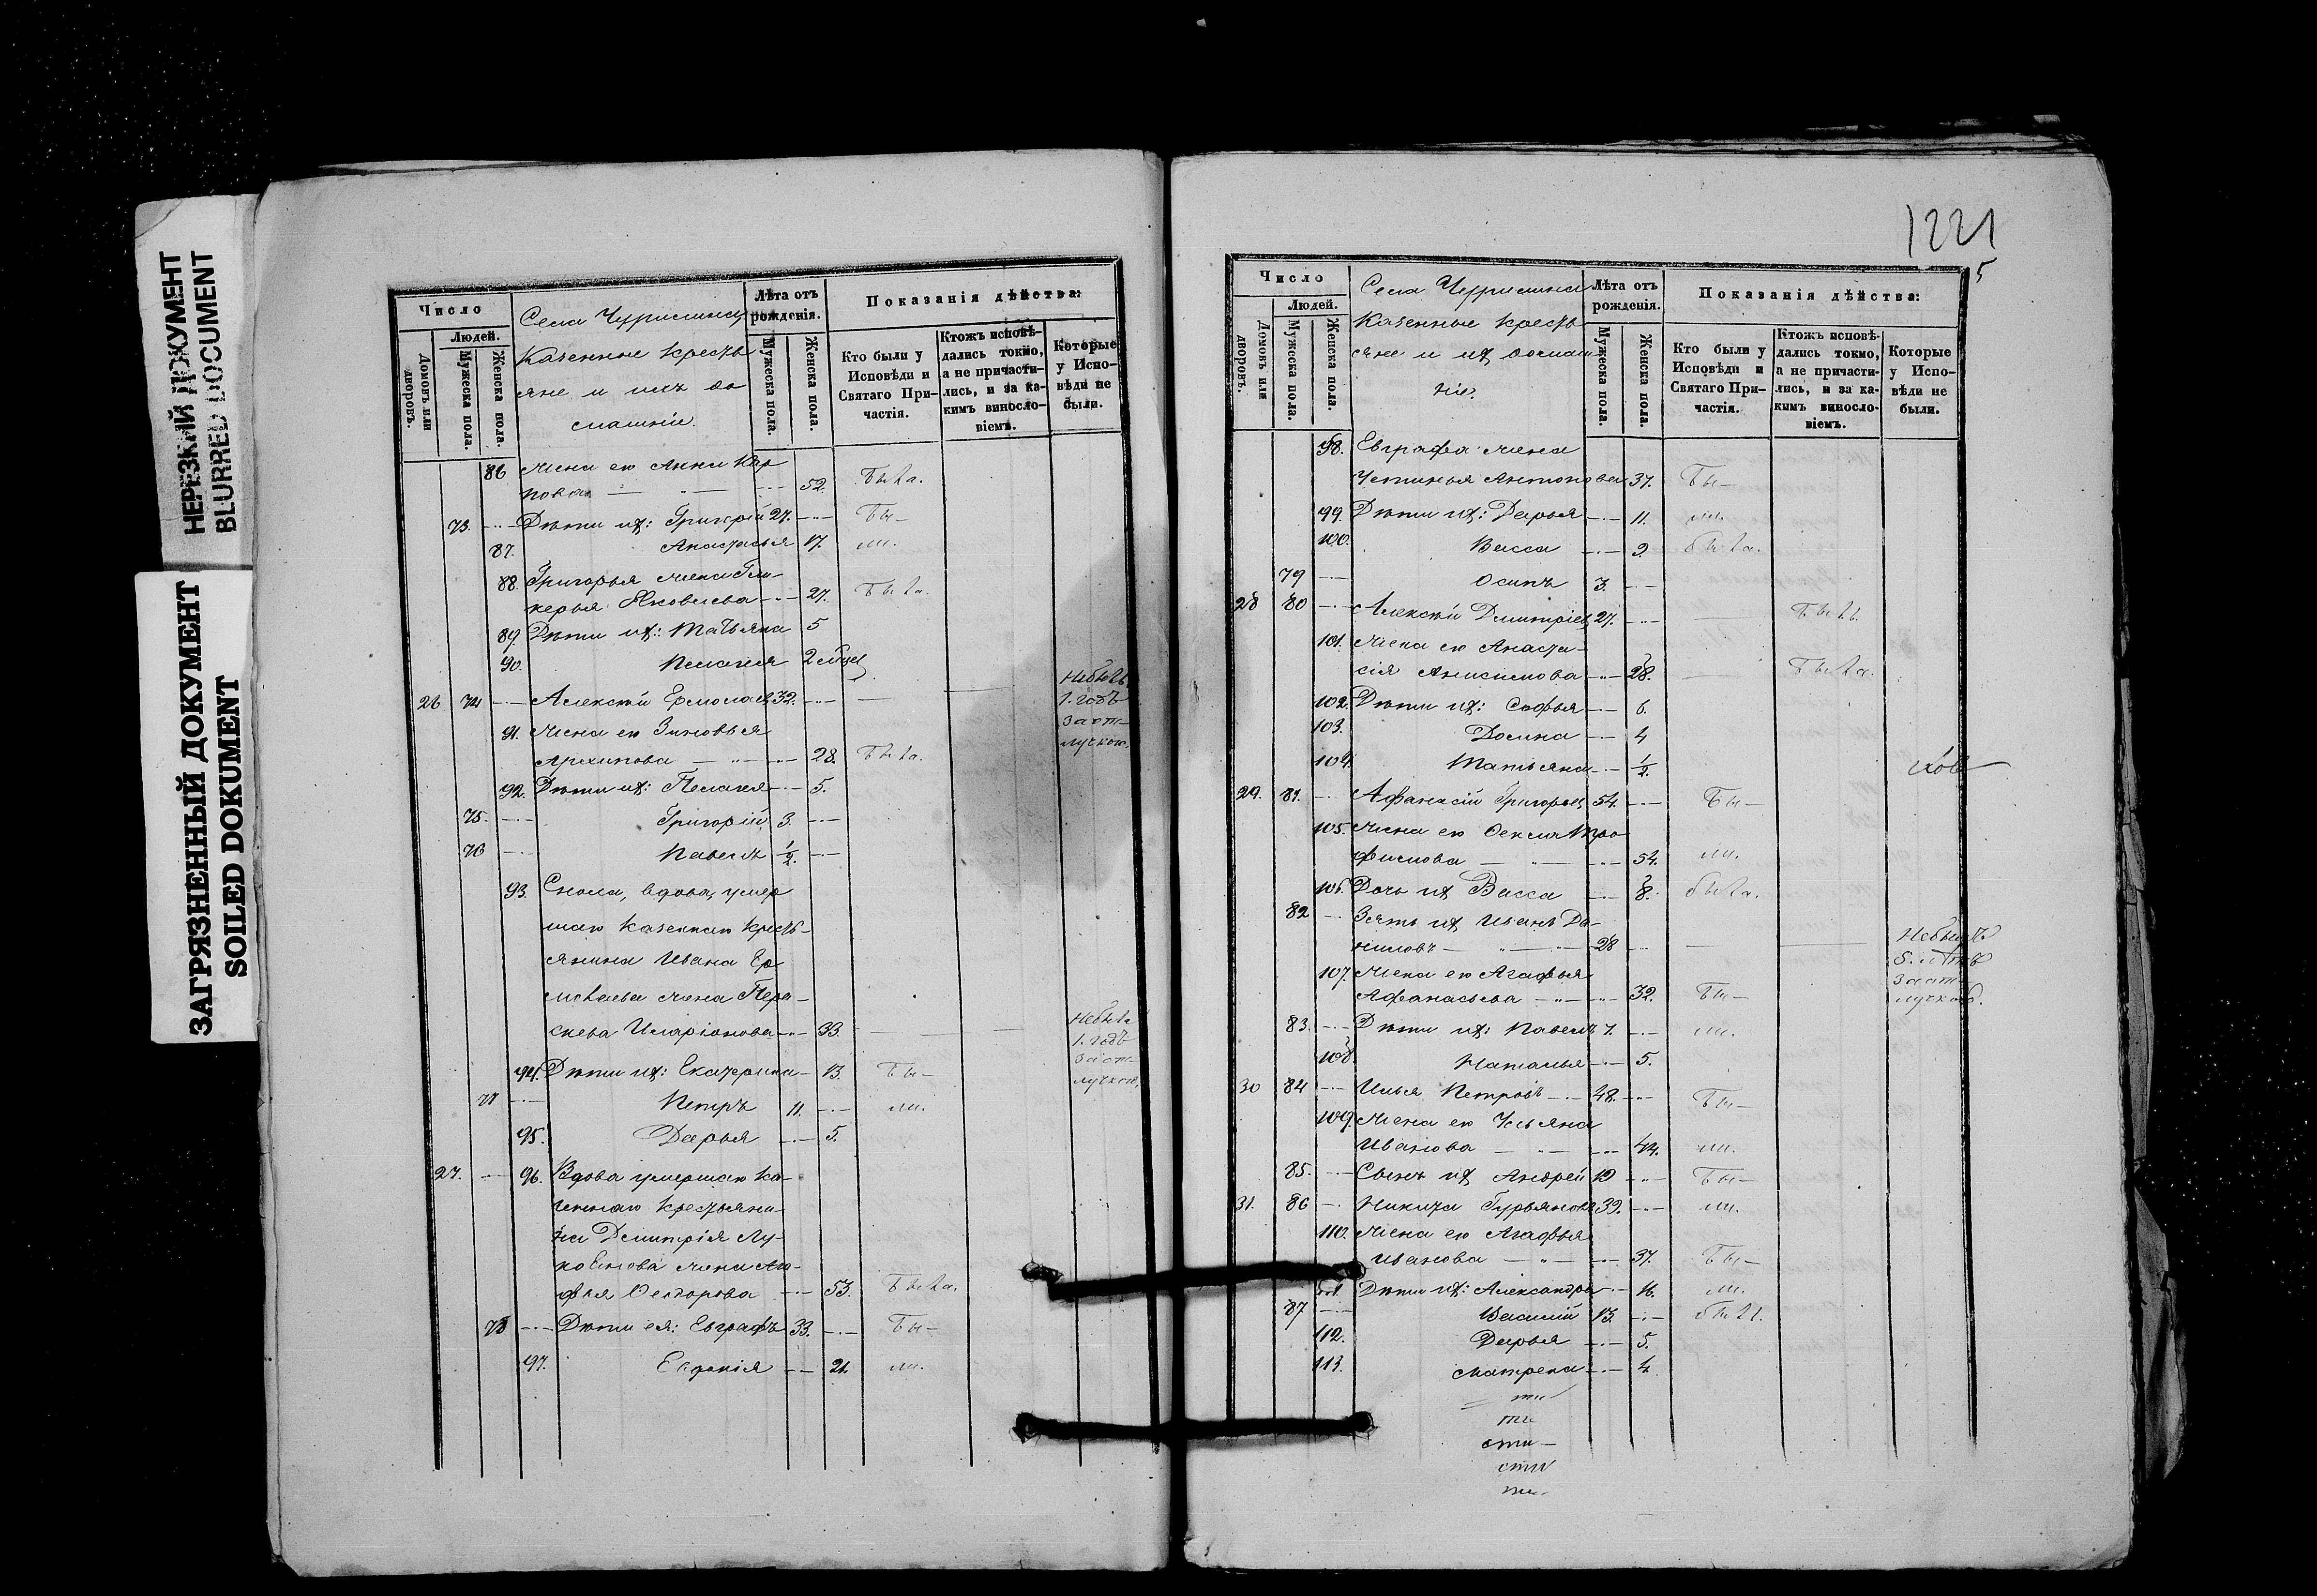 НЕРЕЗКИЙ ДОКУМЕНТ
BLURRED DOCUMENT
ЗАГРЯЗНЕННЫЙ ДОКУМЕНТ
SOILED DOKUMENT
Число
Людей.
Домовъ или дворовъ.
Мужеска пола.
Женска пола.
Села
Казенные кресть
яне и ихъ до
машніи.
Лѣта отъ рожденія.
Мужеска пола.
Женска пола.
Показанія дѣйства:
Кто были у Исповѣди и Святаго Причастія.
Ктожъ исповѣдались токмо, а не причастились, и за какимъ винословіемъ.
Которые у Исповѣди не были.
86 Жена его Анна Кар
пова 52. Была.
73. Дѣти ихъ: Григорій 27. Бы-
87. Анастасья 17. ли.
88. Григорья жена Гли-
керья Яковлева 27. Была.
89. Дѣти ихъ: Татьяна 5
90. Пелагея 2
26 74 Алексѣй Ермолаев 32. Небылъ
1. годъ
за от-
лучкою.
91. Жена его Зиновья
Архипова 28. Была.
92. Дѣти ихъ: Пелагея 5.
75. Григорій 3.
76 Павелъ 1/2.
93. Сноха, вдова, умер
шаго казеннаго кресть-
янина Ивана Ер
молаева жена Пара-
скева Иларіонова 33. Небыла
1. годъ
за от-
лучкою.
94. Дѣти ихъ: Екатерина 13. Бы-
77 Петръ 11. ли.
95. Дарья 5.
27. 96. Вдова умершаго ка-
зеннаго крестьяни-
на Димитрія Лу-
жена Ага-
фья Ѳеодорова 53. Была.
78 Дѣти ея: Евграфъ 33. Бы-
97. Евдокія 21. ли.
1221
5
Число
Людей.
Домовъ или дворовъ.
Мужеска пола.
Женска пола.
Села
Казенные кресть
яне и ихъ домаш
ніе.
Лѣта отъ рожденія.
Мужеска пола.
Женска пола.
Показанія дѣйства:
Кто были у Исповѣди и Святаго Причастія.
Ктожъ исповѣдались токмо, а не причастились, и за какимъ винословіемъ.
Которые у Исповѣди не были.
98. Евграфа жена
Устинья Антонова 37. Бы-
99. Дѣти ихъ: Дарья 11. ли.
100. Васса 9. была.
79 Осипъ 3.
28 80 Алексѣй Димитріев 27. Былъ.
101. Жена его Анаста-
сія Анисимова 28. Была.
102. Дѣти ихъ: Софья 6.
103. Домна 4
104. Татьяна 1/2.
29. 81. Афанасій Григорьев 54. Бы-
105. Жена его Ѳекла Тро
фимова 54. ли.
106. Дочь ихъ Васса 8. была.
82 Зять ихъ Иванъ Да-
ниловъ 28 Небылъ
5. лѣтъ
за от
лучкой.
107. Жена его Агафья
Афанасьева 32. Бы-
83. Дѣти ихъ: Павелъ 7. ли.
108. Наталья 5.
30 84 Илья Петровъ 48. Бы-
109. Жена его Ульяна
Иванова 44. ли.
85. Сынъ ихъ Андрей 19 Бы-
31. 86 Никита Гурьяновъ 39. ли.
110. Жена его Агафья
Иванова 37. Бы-
111. Дѣти ихъ: Александра 16. ли.
87 Василій 13. былъ.
112. Дарья 5.
113. Матрена 4